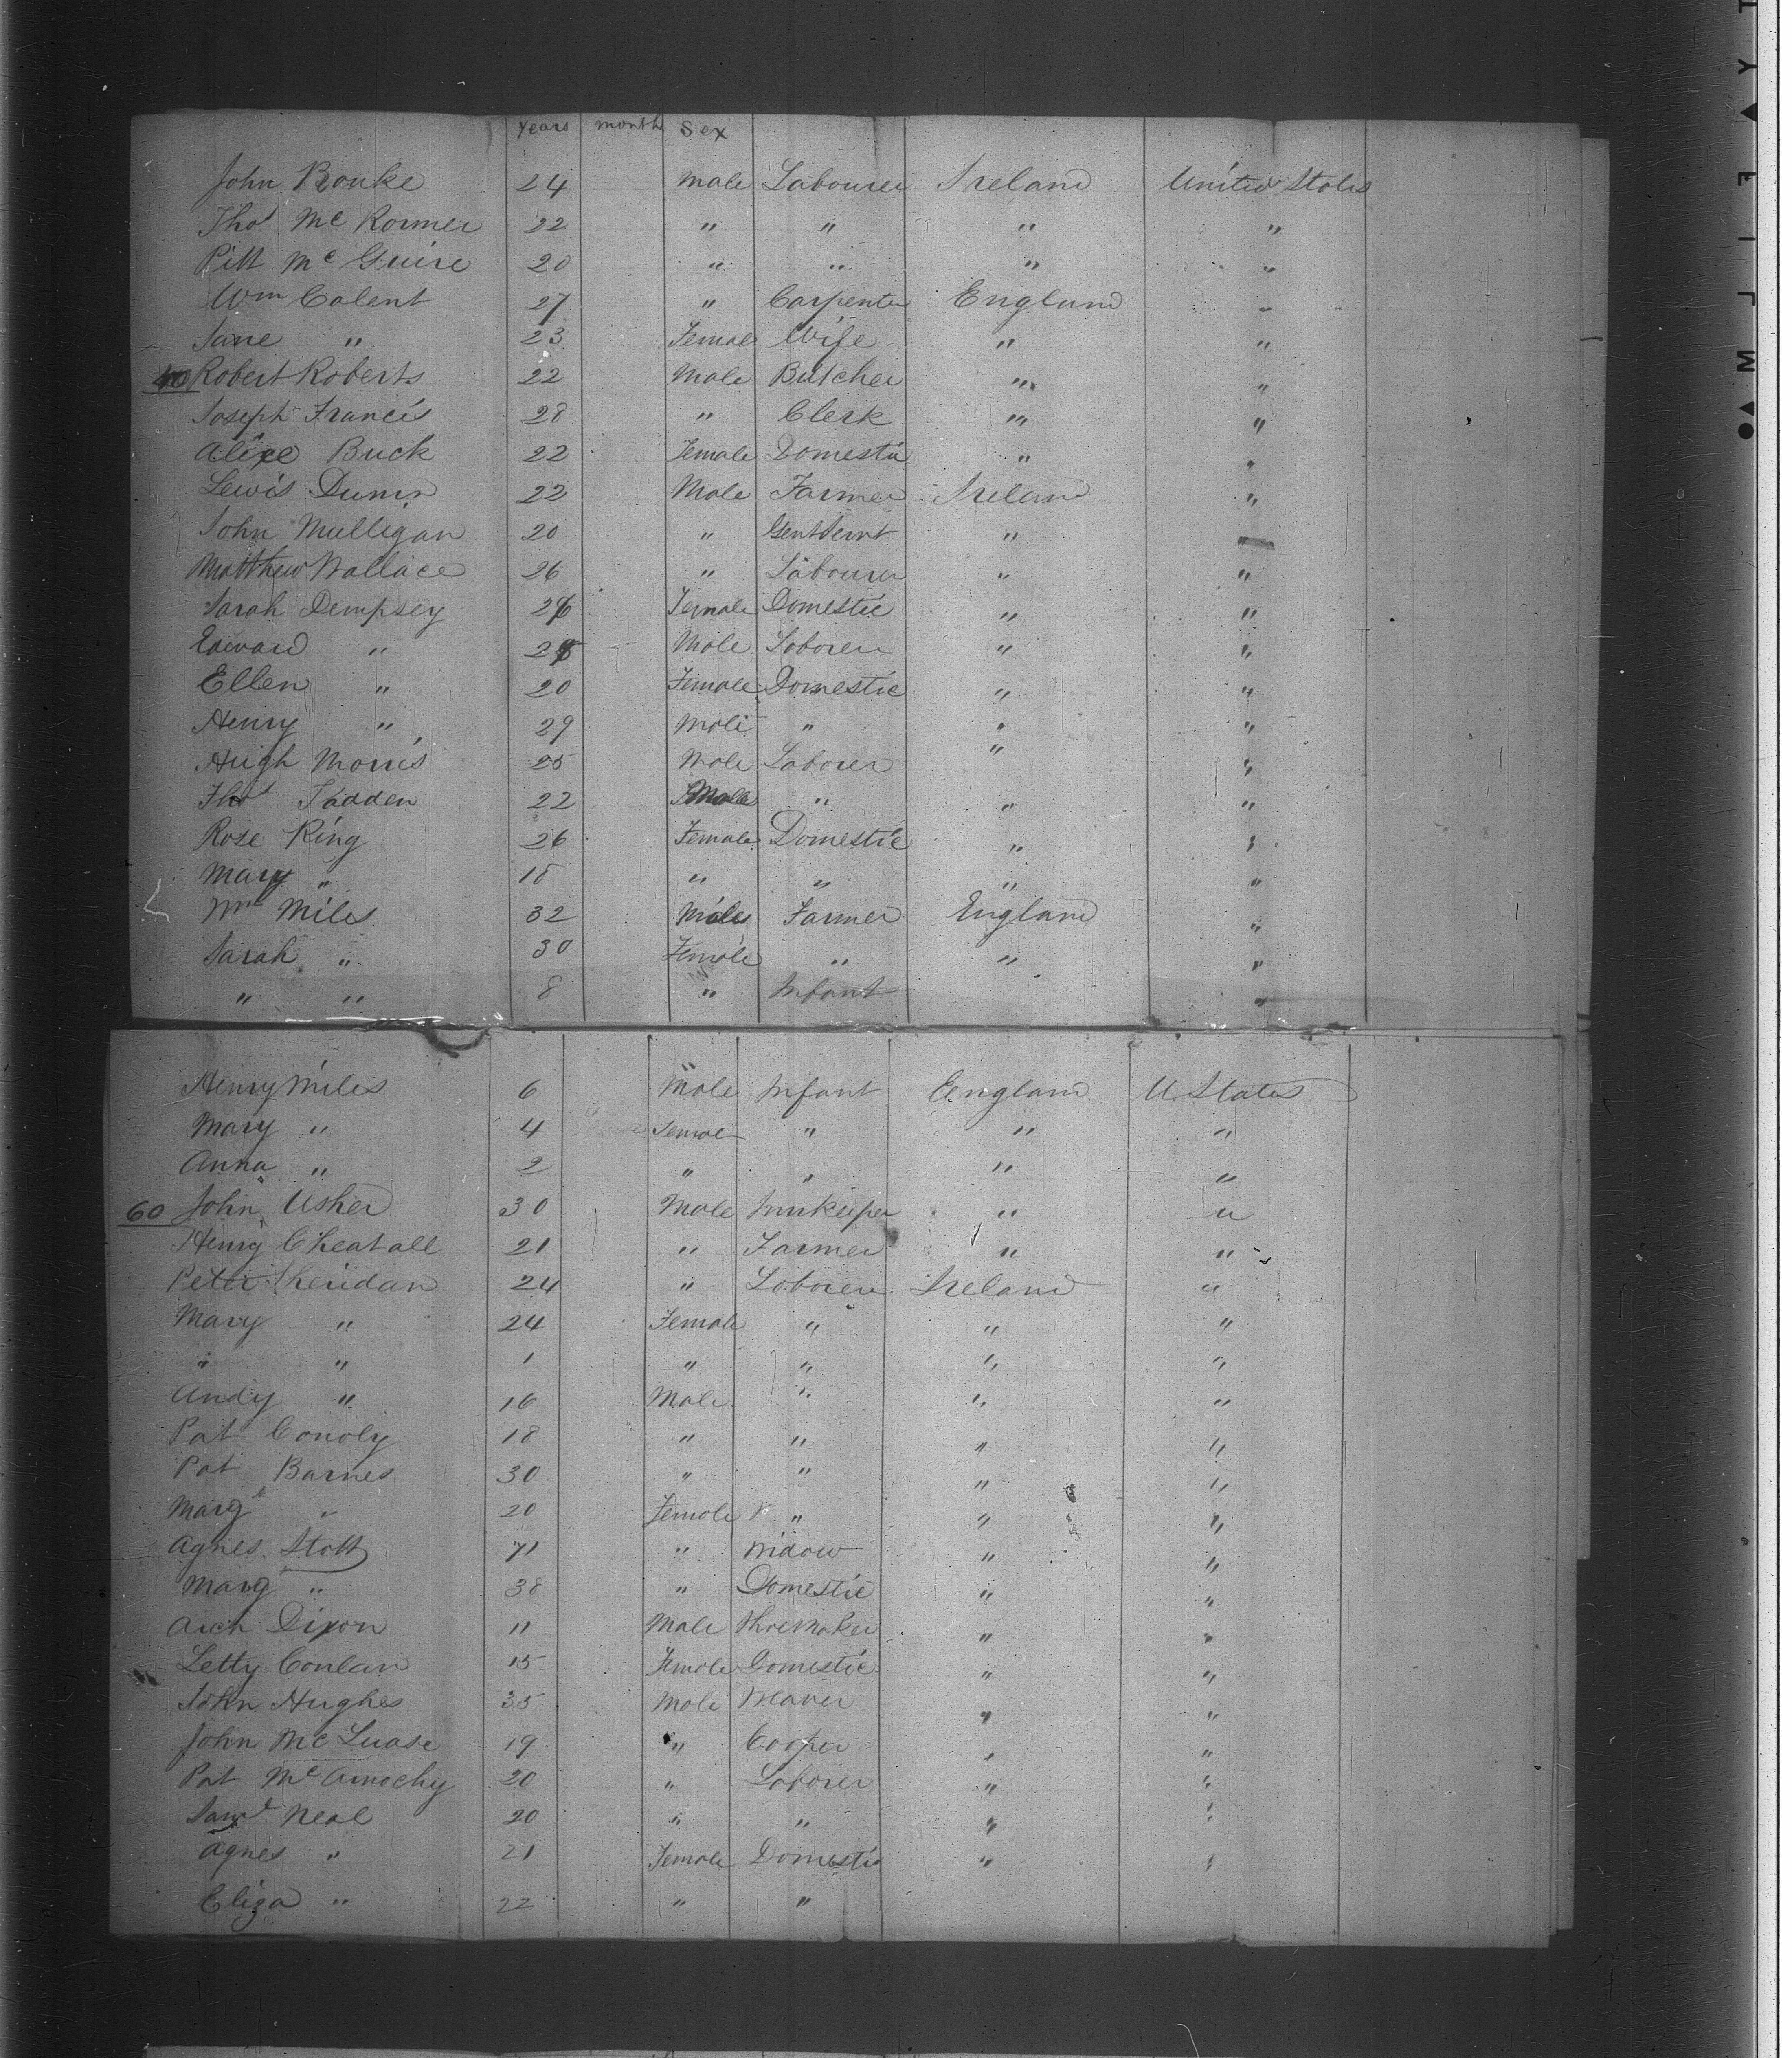 years month Sex
John Rouke 24 Male Labourer Ireland United States
Thos Mc Kormer 22 " " " "
Pitt Mc Guire 20 " " " "
Wm Calent 27 " Carpenter England "
Jane " 23 Female Wife " "
40 Robert Roberts 22 Male Butcher " "
Joseph Francis 28 " Clerk " "
Alice Buck 22 Female Domestic " "
Lewis Dunin 22 Male Farmer Ireland "
John Mulligan 20 " Gent Servt " "
Matthew Wallace 26 " Labourer " "
Sarah Dempsey 26 Female Domestic " "
Edward " 28 Male Laborer " "
Ellen " 20 Female Domestic " "
Henry " 29 Male " " "
Hugh Morris 25 Male Laborer " "
Thos Tadden 22 Male " " "
Rose King 26 Female Domestic " "
Mary " 18 " " " "
Wm Miles 32 Male Farmer England "
Sarah " 30 Female " " "
" " 8 " Infant "
Henry Miles 6 Male Infant England U States
Mary " 4 Female " " "
Anna " 2 " " " "
60 John Usher 30 Male Innkeeper " "
Henry Cheatall 21 " Farmer " "
Peter Sheridan 24 " Laborer Ireland "
Mary " 24 Female " " "
" " 1 " " " "
Andy " 16 Male " " "
Pat Conoly 18 " " " "
Pat Barnes 30 " " " "
Margt " 20 Female " " "
Agnes Stott 71 " Widow " "
Marg " 38 " Domestic " "
Arch Dixon 11 Male Shoemaker " "
Letty Conlan 15 Female Domestic " "
John Hughes 35 Male Weaver " "
John Mc Luase 19 " Cooper " "
Pat Mc Amochy 20 " Laborer " "
Saml Neal 20 " " " "
Agnes " 21 Female Domestic " "
Eliza " 22 " "